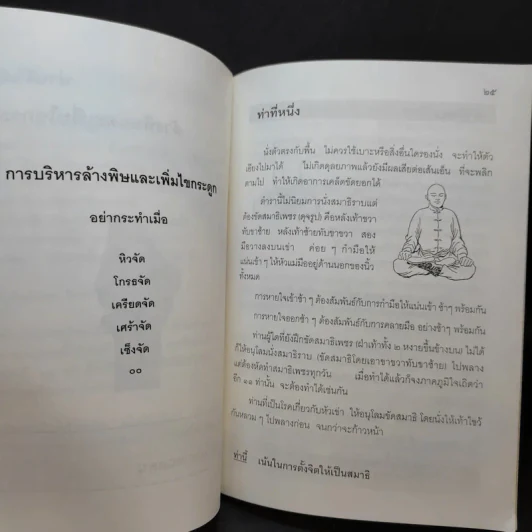 การบริหารล้างพิษและเพิ่มไขกระดูก
อย่ากระทำเมื่อ
หิวจัด
โกรธจัด
เครียดจัด
เศร้าจัด
เซ็งจัด
๐๐
๒๕
ท่าที่หนึ่ง
นั่งตัวตรงกับพื้น ไม่ควรใช้เบาะหรือสิ่งอื่นใดรองนั่ง จะทำให้ตัว
เอียงไปมาได้ ไม่เกิดดุลยภาพแล้วยังมีผลเสียต่อเส้นเอ็น ที่จะพลิก
ตามไป ทำให้เกิดอาการเคล็ดขัดยอกได้
ตำรานี้ไม่นิยมการนั่งสมาธิราบแต่
ต้องขัดสมาธิเพชร (ดุจรูป) คือหลังเท้าขวา
ทับขาซ้าย หลังเท้าซ้ายทับขาขวา สอง
มือวางลงบนเข่า ค่อย ๆ กำมือให้
แน่นเข้า ๆ ให้หัวแม่มืออยู่ด้านนอกของนิ้ว
ทั้งหมด
การหายใจเข้าช้า ๆ ต้องสัมพันธ์กับการกำมือให้แน่นเข้า ช้าๆ พร้อมกัน
การหายใจออกช้า ๆ ต้องสัมพันธ์กับการคลายมือ อย่างช้าๆ พร้อมกัน
ท่านผู้ใดที่ยังฝึกขัดสมาธิเพชร (ฝ่าเท้าทั้ง ๒ หงายขึ้นข้างบน) ไม่ได้
ก็ให้อนุโลมนั่งสมาธิราบ (ขัดสมาธิโดยเอาขาขวาทับขาซ้าย) ไปพลาง
แต่ต้องหัดทำสมาธิเพชรทุกวัน เมื่อทำได้แล้วก็จงภาคภูมิใจเถิดว่า
อีก ๑๑ ท่านั้น จะต้องทำได้เช่นกัน
ท่านที่เป็นโรคเกี่ยวกับหัวเข่า ให้อนุโลมขัดสมาธิ โดยนั่งให้เท้าไขว้
กันหลวม ๆ ไปพลางก่อน จนกว่าจะก้าวหน้า
ท่านี้ เน้นในการตั้งจิตให้เป็นสมาธิ